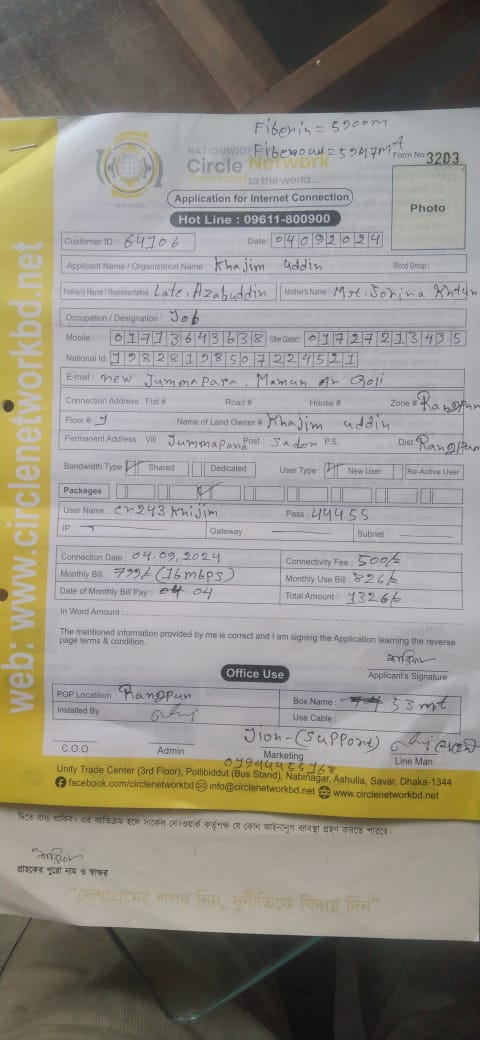 Fiberin = 5900m
Fiberout = 5947mt
NATIONWIDE
Circle Network
Connected to the world....
Form No 3203
Application for Internet Connection
Photo
Hot Line : 09611-800900
Customer ID : 64106 Date: 04092024
Applicant Name / Organization Name : Khajim uddin Blood Group :
Father's Name / Representative : Late. Azabuddin Mother's Name : Mst. Johina Khtun
Occupation / Designation : Job
Mobile : 01713643638 Other Contact : 01727213435
National Id: 19828198507224521
E-mail : new Jummapara. Mamun Ar Goli
Connection Address : Flat # Road # House # Zone # Rangpur
Floor # 1 Name of Land Owner # Khajim uddin
Permanent Address : Vill : Jummapara Post : Sador P.S. Dist. Rangpur
Bandwidth Type Shared Dedicated User Type : New User Re-Active User
Packeges
User Name : cr243 khijim Pass : 44455
IP : Gateway : Subnet :
Connection Date : 04.09,2024 Connectivity Fee : 500/=
Monthly Bill : 799/= (16mbps) Monthly Use Bill : 826/=
Date of Monthly Bill Pay : 04 Total Amount : 1326/=
In Word Amount :
The mentioned information provided by me is correct and I am signing the Application learning the reverse
page terms & condition.
Applicant's Signature
Office Use
POP Locatition : Rangpur Box Name : 53 mt
Installed By Use Cable :
Jion-(Support)
C.O.O Admin Marketing Line Man
01944455168
Unity Trade Center (3rd Floor), Pollibiddut (Bus Stand), Nabinagar, Ashulia, Savar, Dhaka-1344
facebook.com/circlenetworkbd info@circlenetworkbd.net www.circlenetworkbd.net
web: www.circlenetworkbd.net
দিতে বাধ্য থাকিব। এর ব্যতিক্রম হলে সার্কেল নেটওয়ার্ক কর্তৃপক্ষ যে কোন আইনানুগ ব্যবস্থা গ্রহণ করতে পারবে।
গ্রাহকের পুরো নাম ও স্বাক্ষর
"দেশপ্রেমের শপথ নিন, দুর্নীতিকে বিদায় দিন"